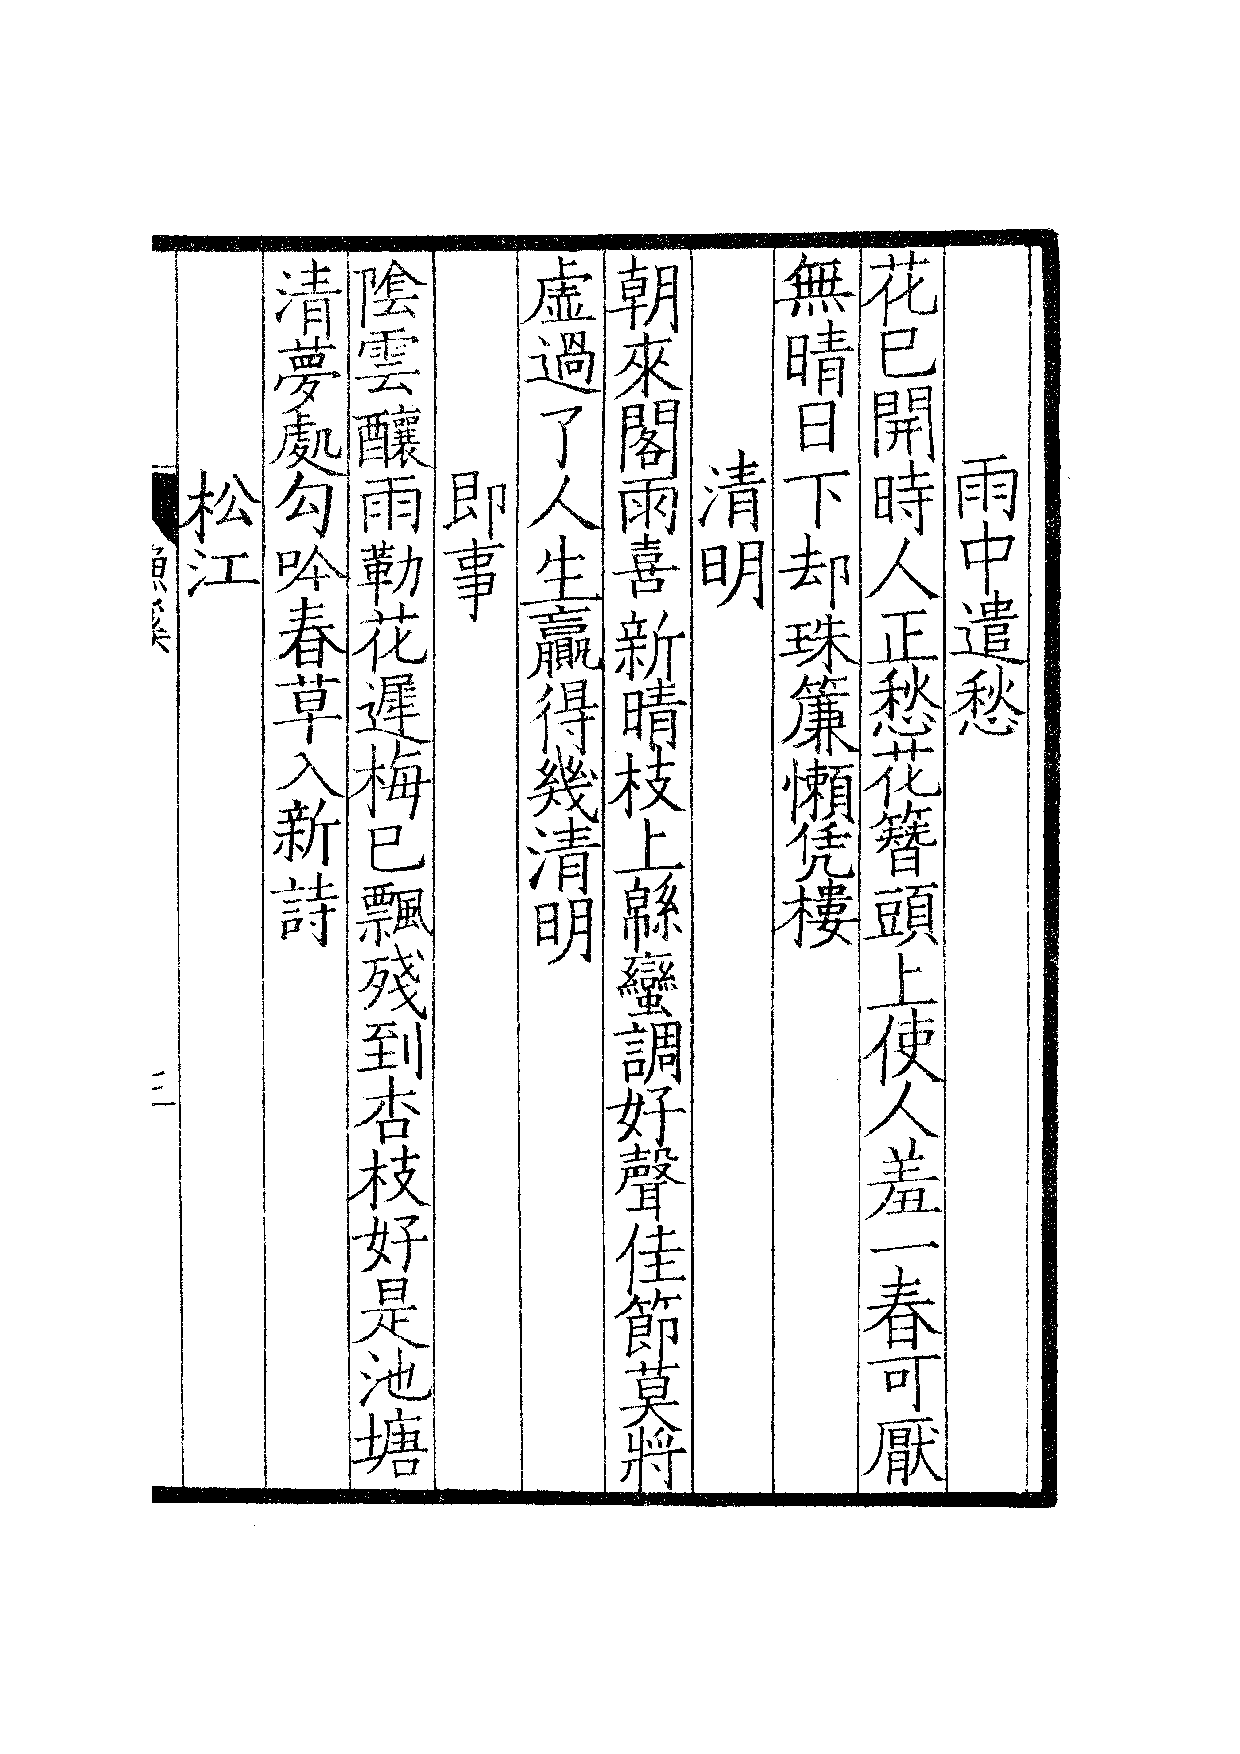 雨中遣愁
花已開時人正愁花簪頭上使人羞一春可厭
無晴日下却珠簾懶凭樓
清明
朝來閣雨喜新晴枝上緜蠻調好聲佳節莫將
虚過了人生贏得幾清明
即事
陰雲釀雨勒花遲梅已飄殘到杏枝好是池塘
清夢處勾吟春草入新詩
松江
漁溪
三